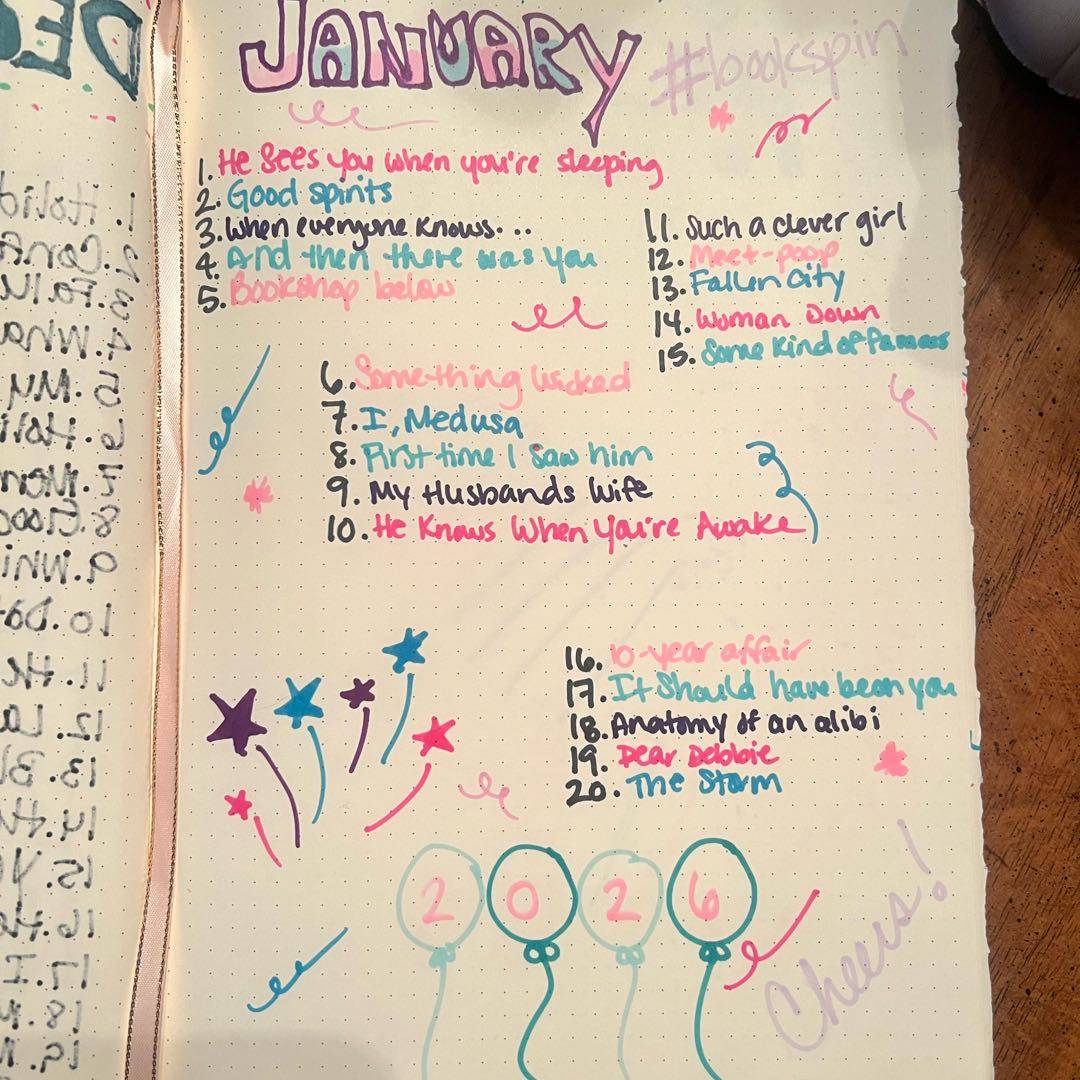 JANUARY
#bookspin
1. He Sees You when you're sleeping
2. Good spirits
3. When everyone knows...
4. And then there was you
5. Bookshop below
6. Something Wicked
7. I, Medusa
8. First time I saw him
9. My Husbands Wife
10. He Knows When You're Awake
11. Such a clever girl
12. Meet-poop
13. Fallen City
14. Woman Down
15. Some Kind of Famous
16. 10-year affair
17. It Should have been you
18. Anatomy of an alibi
19. Dear Debbie
20. The Storm
2026
Cheers!